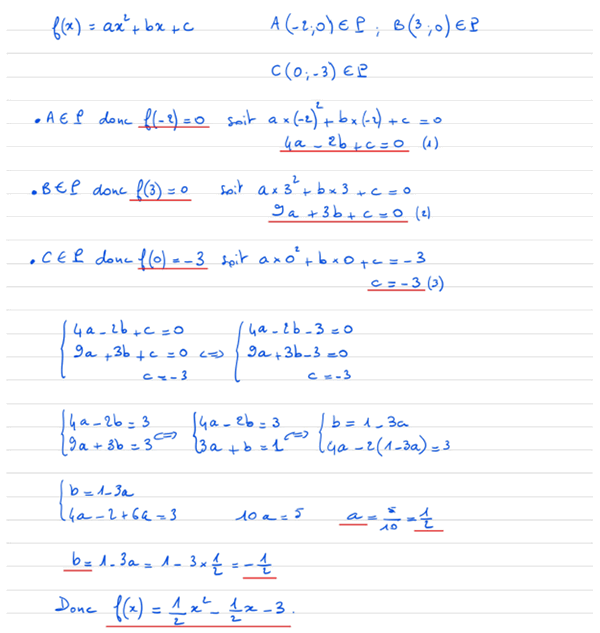 f(x) = ax² + bx + c   A(-2;0) ∈ P ; B(3;0) ∈ P
C(0;-3) ∈ P
• A ∈ P donc f(-2) = 0 soit a×(-2)² + b×(-2) + c = 0
4a - 2b + c = 0 (1)
• B ∈ P donc f(3) = 0 soit a×3² + b×3 + c = 0
9a + 3b + c = 0 (2)
• C ∈ P donc f(0) = -3 soit a×0² + b×0 + c = -3
c = -3 (3)
{ 4a - 2b + c = 0   { 4a - 2b - 3 = 0
9a + 3b + c = 0 <=> 9a + 3b - 3 = 0
c = -3   c = -3
{ 4a - 2b = 3 <=> { 4a - 2b = 3 <=> { b = 1 - 3a
9a + 3b = 3   3a + b = 1   4a - 2(1 - 3a) = 3
{ b = 1 - 3a
4a - 2 + 6a = 3   10a = 5   a = 5/10 = 1/2
b = 1 - 3a = 1 - 3 × 1/2 = -1/2
Donc f(x) = 1/2 x² - 1/2 x - 3.